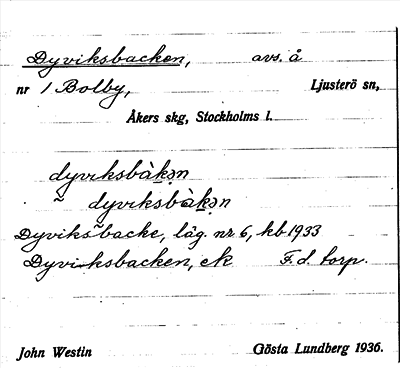 Dyviksbacken, avs. å
nr 1 Bolby, Ljusterö sn,
Åkers skg, Stockholms l.
dyviksbàk̬ən
~ dyviksbàk̬ən
Dyviksbacke, läg. nr 6, kb 1933
Dyviksbacken, ek F.d. torp.
John Westin Gösta Lundberg 1936.